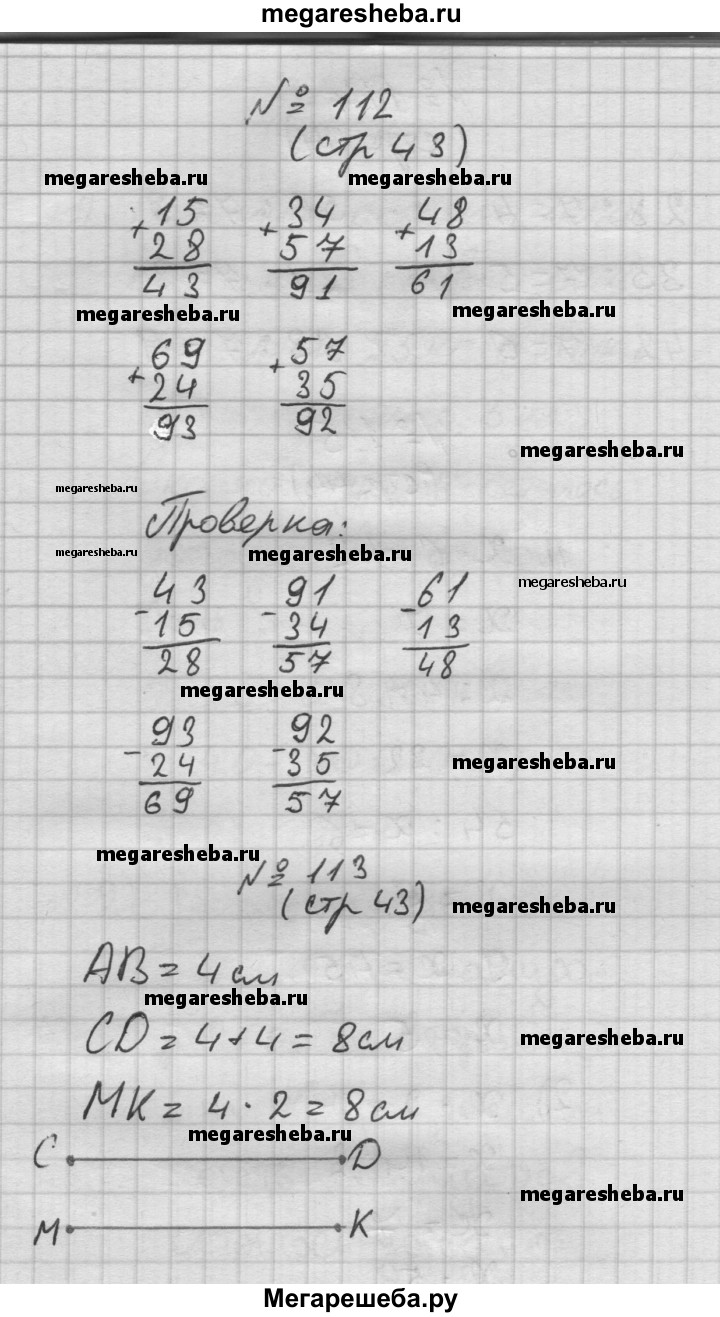 megaresheba.ru
№ 112
(стр 43)
megaresheba.ru megaresheba.ru
+15 +34 +48
28 57 13
43 91 61
megaresheba.ru megaresheba.ru
+69 +57
24 35
93 92
megaresheba.ru
megaresheba.ru
Проверка:
megaresheba.ru megaresheba.ru
megaresheba.ru
-43 -91 -61
15 34 13
28 57 48
megaresheba.ru
-93 -92
24 35
69 57
megaresheba.ru
megaresheba.ru
№ 113
(стр 43)
megaresheba.ru
AB = 4 см
megaresheba.ru
CD = 4 + 4 = 8 см
megaresheba.ru
MK = 4 · 2 = 8 см
megaresheba.ru
C D
megaresheba.ru
M K
Мегарешеба.ру